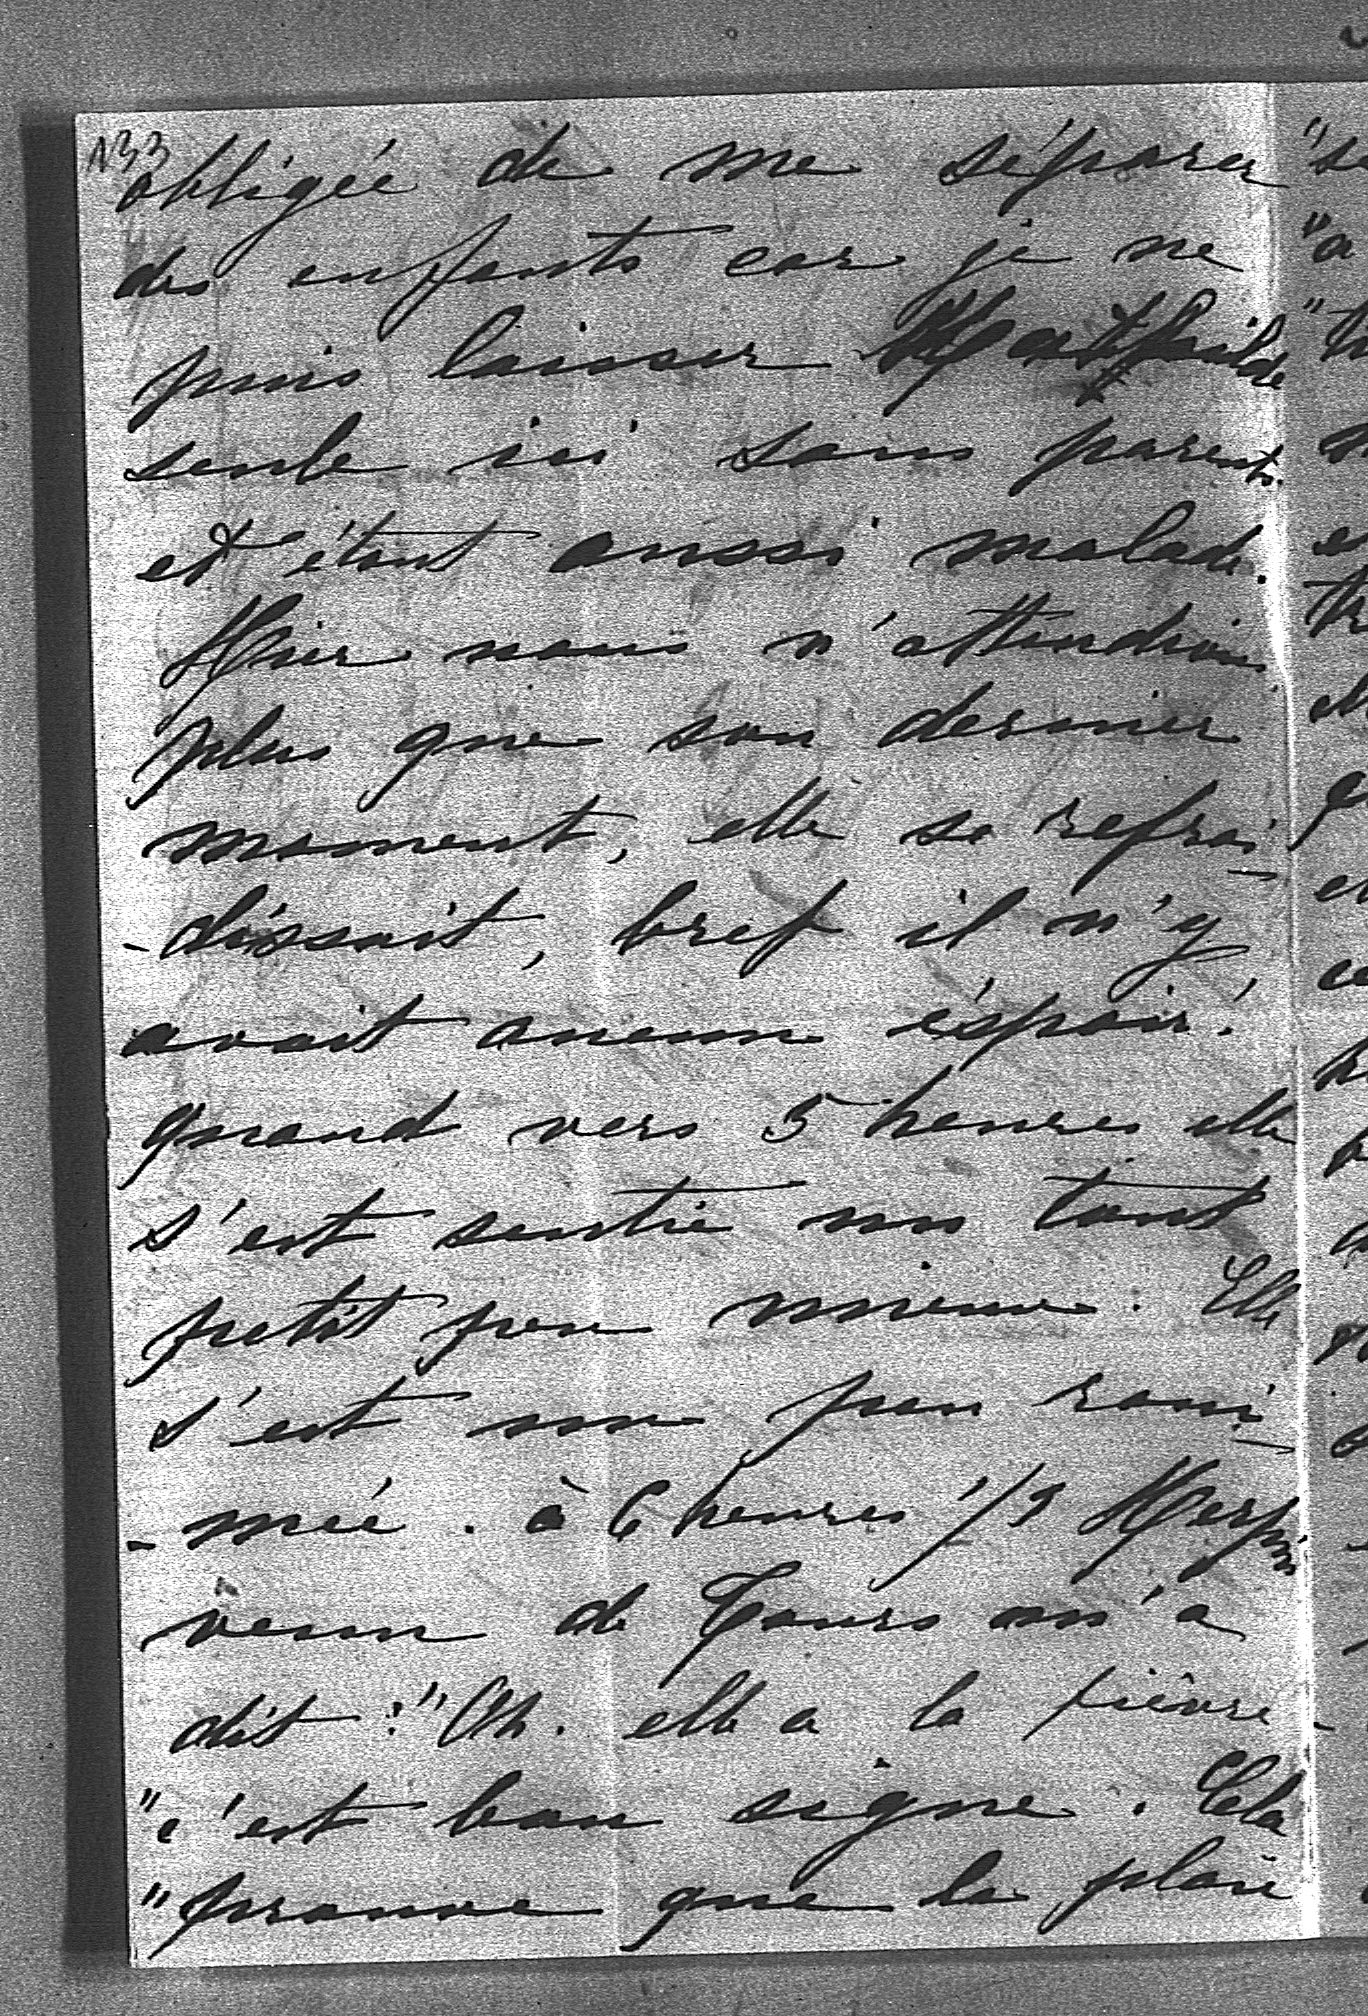 133
obligée de me séparer
des enfants car je ne
puis laisser Mathilde
seule ici sans parents
et étant aussi malade.
Hier nous n'attendions
plus que son dernier
moment, elle se refroi
-dissait, bref il n'y
avait aucun éspoir!
quand vers 5 heures elle
s'est sentie un tout
petit peu mieux. Elle
s'est un peu rani
-mée. à 6 heures 1/2
venu de Tours m'a
dit : "Ah. elle a la fièvre
"c'est bon signe. Cela
"prouve que la plaie